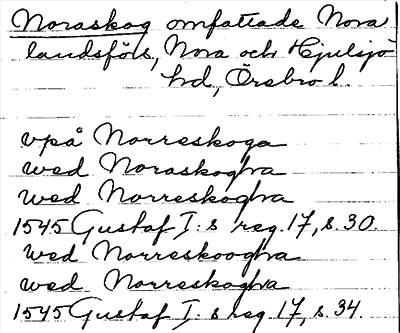 Noraskog omfattade Nora
landsförs, Nora och Hjulsjö
hd, Örebro l.
vpå Norreskoga
wed Noraskogha
wed Norreskogha
1545 Gustaf I:s reg. 17, s. 30.
wed Norreskoogha
wed Norreskogha
1545 Gustaf I:s reg. 17, s. 34.